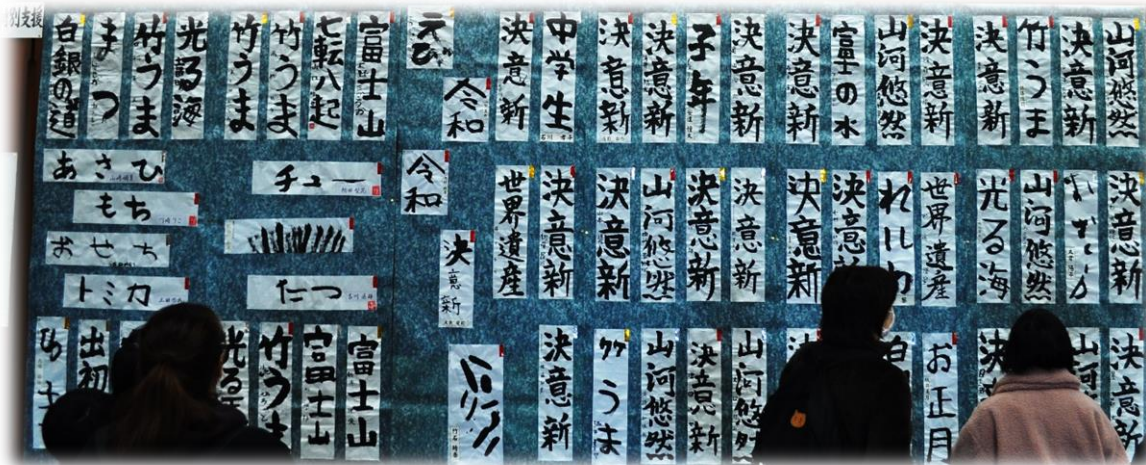 別支援
白銀の道
まつ
竹うま
光る海
竹うま
竹うま
七転八起
富士山
えび
令和
決意新
中学生
決意新
決意新
子年
決意新
決意新
富士の水
山河悠然
決意新
決意新
竹うま
決意新
山河悠然
あさひ
もち
おせち
トミカ
チュー
たつ
令和
決意新
世界遺産
決意新
決意新
山河悠然
決意新
決意新
決意新
決意新
世界遺産
光る海
山河悠然
決意新
出初
光る
竹うま
富士山
富士山
決意新
うま
山河悠然
決意新
山河悠
お正月
決意新